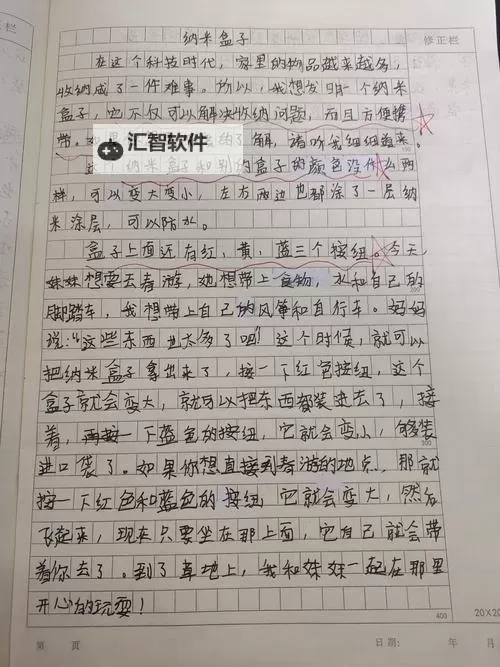 纳米盒子
修正栏
在这个科技时代，家里的物品越来越多，
收纳成了一件难事。所以，我想发明一个纳米
盒子，它不仅可以解决收纳问题，而且方便携
带。如果 的了解，请听我细细道来。
汇智软件
这个纳米盒子和别的盒子的颜色没什么两
样，可以变大变小，左右两边也都涂了一层纳
米涂层，可以防水。
盒子上面还有红，黄，蓝三个按钮。今天，
妹妹想要去春游，她想带上食物，水和自己的
脚踏车，我想带上自己的风筝和自行车。妈妈
说：“这些东西也太多了吧！”这个时候，就可以
把纳米盒子拿出来了，按一下红色按钮，这个
盒子就会变大，就可以把东西都装进去了，接
着，再按一下蓝色的按钮，它就会变小，够装
进口袋了。如果你想直接到春游的地点，那就
按一下红色和蓝色的按钮，它就会变大，然后
飞起来，现来只要坐在那上面，它自己就会带
着你去了。到了草地上，我和妹妹一起在那里
开心的玩耍！
100
200
300
400
20×20
第 页
日期： 年 月